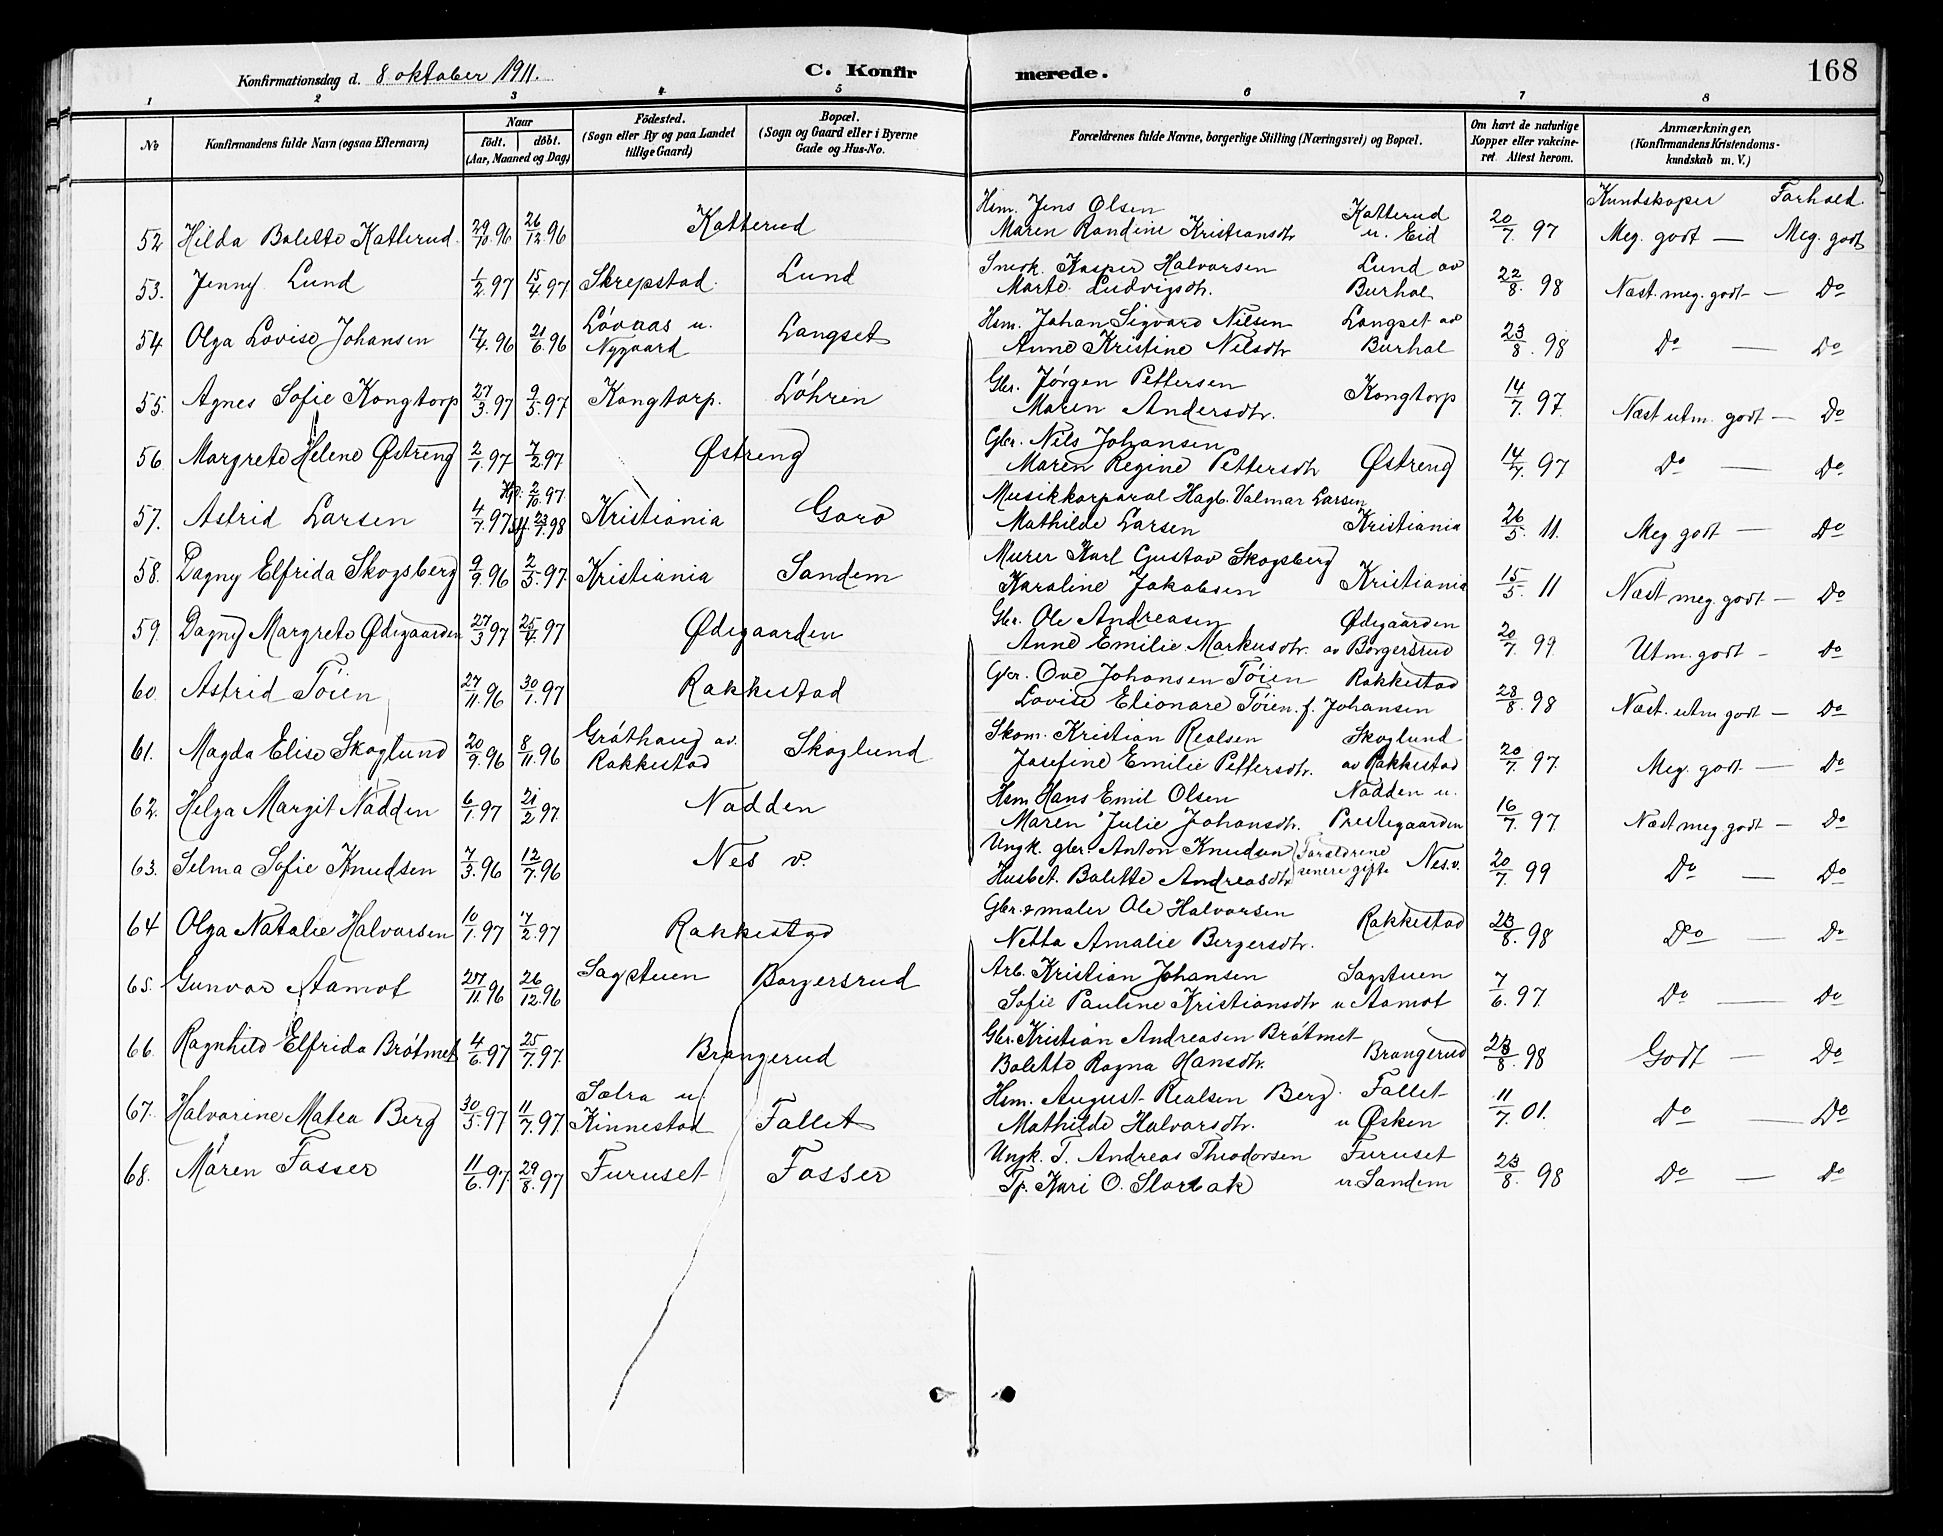 Konfirmationsdag d. 8 oktober 1911.
C. Konfirmerede.
168
1 2 3 4 5 6 7 8
No
Konfirmandens fulde Navn (ogsaa Efternavn)
Naar
födt. döbt.
(Aar, Maaned og Dag)
Födested.
(Sogn eller By og paa Landet
tillige Gaard)
Bopæl.
(Sogn og Gaard eller i Byerne
Gade og Hus-No.
Forældrenes fulde Navne, borgerlige Stilling (Næringsvei) og Bopæl.
Om havt de naturlige
Kopper eller vakcine-
ret. Attest herom.
Anmærkninger.
(Konfirmandens Kristendoms-
kundskab m. V.)
Kundskaper Forhold.
Hsm. Jens Olsen Katterud
52 Hilda Bolette Katterud 29/10.96 26/12.96 Katterud Maren Randine Kristiansdtr u. Eid 20/7.97 Meg. godt — Meg. godt
Snedk. Kasper Halvorsen Lund av
53. Jenny Lund 1/2.97 15/4.97 Skrepstad. Lund Marte Ludvigsdtr. Burhol 22/8.98 Næst. meg. godt — Do
Løvaas u. Hsm. Johan Sigvard Nilsen Langset av
54 Olga Lovise Johansen 17/4.96 21/6.96 Nygaard Langset Anne Kristine Nilsdtr Burhol 23/8.98 Do — Do
Gbr. Jörgen Pettersen
55. Agnes Sofie Kongtorp 27/3.97 9/5.97 Kongtorp. Löhren Maren Andersdtr. Kongtorp 14/7.97. Næst utm. godt — Do
Gbr. Nils Johansen
56 Margrete Helene Østreng 2/1.97 7/2.97 Østreng Maren Regine Pettersdtr Østreng 14/7.97 Do — Do
Hjd. 2/10.97. Musikkorporal Hagb. Valmar Larsen
57. Astrid Larsen 4/7.97 23/7.98 Kristiania Garo Mathilde Larsen Kristiania 26/5.11. Meg godt — Do
Murer Karl Gustav Skogsberg
58. Dagny Elfrida Skogsberg 9/9.96 2/5.97 Kristiania Sandem Karoline Jakobsen Kristiania 15/5.11 Næst meg. godt — Do
Gbr. Ole Andreasen Ødegaarden
59. Dagny Margrete Ødegaarden 27/3.97 25/4.97 Ødegaarden Anne Emilie Markusdtr. av Borgersrud 20/7.99. Utm. godt - Do
Gbr. Ove Johansen Töien Rakkestad
60. Astrid Töien 27/11.96 30/1.97 Rakkestad Lovise Elionare Töien f. Johansen 23/8.98 Næst. utm godt — Do
Gråthaug av. Skom. Kristian Realsen Skoglund
61. Magda Elise Skoglund 20/9.96 8/11.96 Rakkestad Skoglund Josefine Emilie Pettersdtr. av Rakkestad 20/7.97. Meg. godt — Do
Hsm Hans Emil Olsen Nadden u.
62. Helga Margit Nadden 6/1.97 21/2.97 Nadden Maren Julie Johansdtr. Prestegaarden 16/7.97. Næst meg. godt — Do
Ungk. gbr. Anton Knudsen (Forældrene
63. Selma Sofie Knudsen 7/3.96 12/7.96 Nes v. Husbet. Bolette Andreasdtr senere gifte Nes v. 20/7.99 Do — Do
Gbr. & maler Ole Halvorsen
64 Olga Natalie Halvorsen 10/1.97 7/2.97 Rakkestad Netta Amalie Bergersdtr. Rakkestad 23/8.98 Do — Do
Arb. Kristian Johansen Sagstuen
65. Gunvor Aamot 27/11.96 26/12.96 Sagstuen Borgersrud Sofie Pauline Kristiansdtr u Aamot 7/6.97 Do — Do
Gbr. Kristian Andreasen Bråtmet
66. Ragnhild Elfrida Bråtmet 4/6.97 25/7.97 Brangerud Bolette Ragna Hansdtr. Brangerud 23/8.98 Godt — Do
Sælra u Hsm. August Realsen Berg. Fallet
67. Halvorine Matea Berg 30/5.97 11/7.97 Kinnestad Fallet Mathilde Halvorsdtr. u Øsken 11/7.01. Do — Do
Ungk. T. Andreas Theodorsen Furuset
68. Maren Fosser 11/6.97 29/8.97 Furuset Fosser Tp. Kari O. Slorbak u Sandem 23/8.98 Do — Do